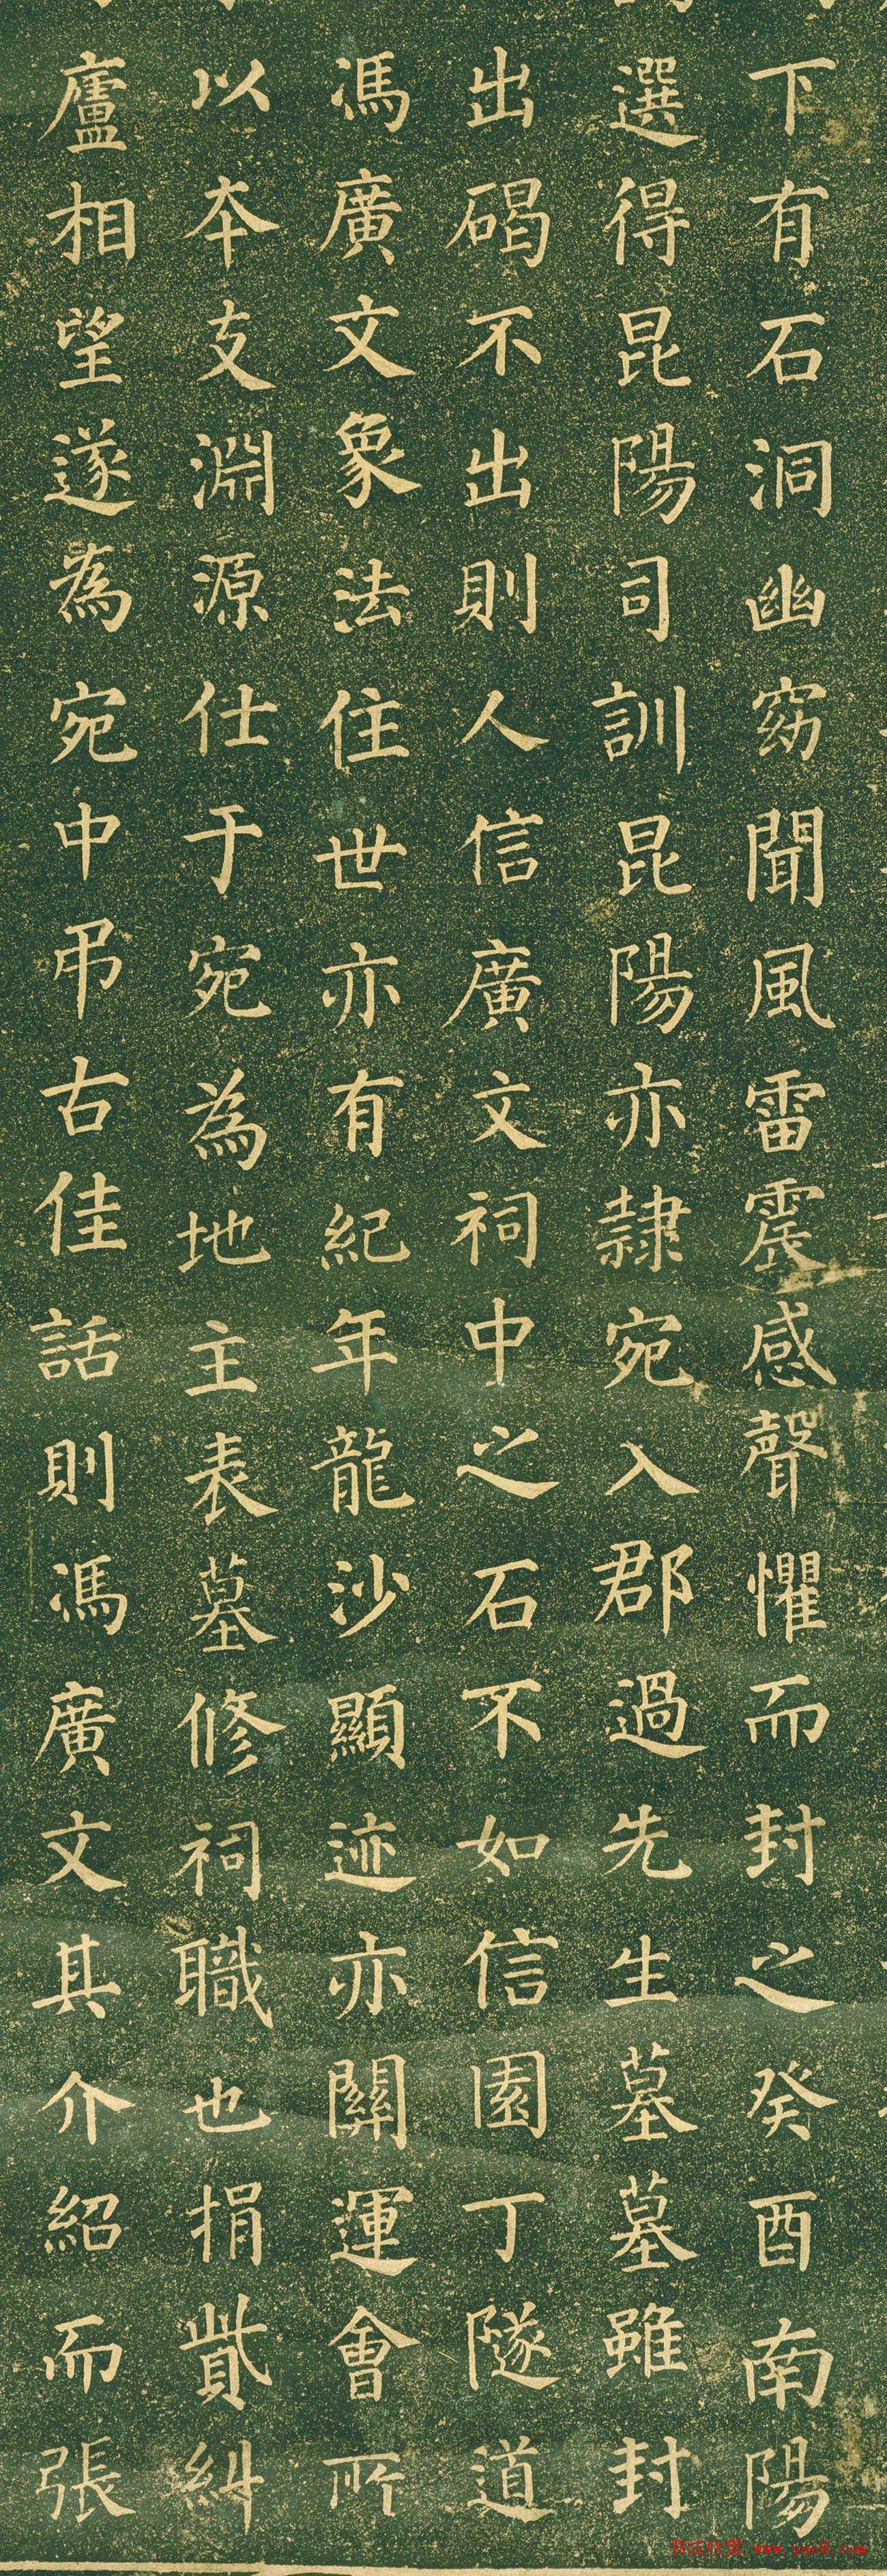 下有石洞幽窈聞風雷震感聲懼而封之癸酉南陽
選得昆陽司訓昆陽亦隸宛入郡過先生墓墓雖封
出碣不出則人信廣文祠中之石不如信園丁隧道
馮廣文象法住世亦有紀年龍沙顯迹亦關運會所
以本支淵源仕于宛為地主表墓修祠職也捐貲糾
廬相望遂為宛中弔古佳話則馮廣文其介紹而張
书法欣赏 www.yac8.com